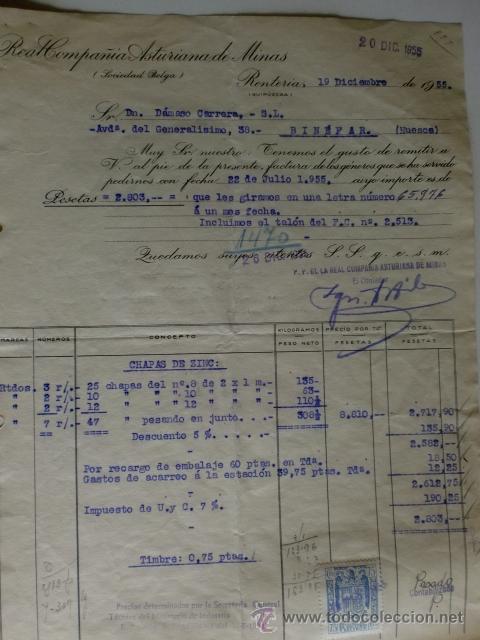 Real Compañía Asturiana de Minas
(Sociedad Belga)
20 DIC. 1955
Rentería, 19 Diciembre de 1955.
(GUIPÚZCOA)
Sr. Dn. Dámaso Carrera, - S.L.
-Avdª. del Generalisimo, 38.- BINÉFAR. (Huesca)
Muy Sr. nuestro: Tenemos el gusto de remitir a
V. al pie de la presente, factura de los géneros que se ha servido
pedirnos con fecha 22 de Julio 1.955. cuyo importe es de
Pesetas = 2.803,-- = que les giramos en una letra número 65,976
á un mes fecha.
Incluimos el talón del F.C. nº. 2.513.
1470
Quedamos suyos atentos S. S. q. e. s. m.
P. P. DE LA REAL COMPAÑIA ASTURIANA DE MINAS
MARCAS NÚMEROS CONCEPTO KILOGRAMOS PESO NETO PRECIO POR TN PESETAS TOTAL PESETAS
CHAPAS DE ZINC:
Rtdos. 3 r/.- 25 chapas del nº.8 de 2 x 1 m.- 135-
" 2 r/.- 10 " " 10 " " 63-
" 2 r/.- 12 " " 12 " " 110½
" 7 r/.- 47 pesando en junto... 308½ 8.810,-- 2.717,90
Descuento 5 %. 135,90
2.582,--
Por recargo de embalaje 60 ptas. en Tda. 18,50
Gastos de acarreo á la estación 39,75 ptas. Tda. 12,25
2.612,75
Impuesto de U.y C. 7 %. 190,25
2.803,--
Timbre: 0,75 ptas.
Contabilizado
Precios determinados por la Secretaría General
Técnica del Ministerio de Industria
todocoleccion.net